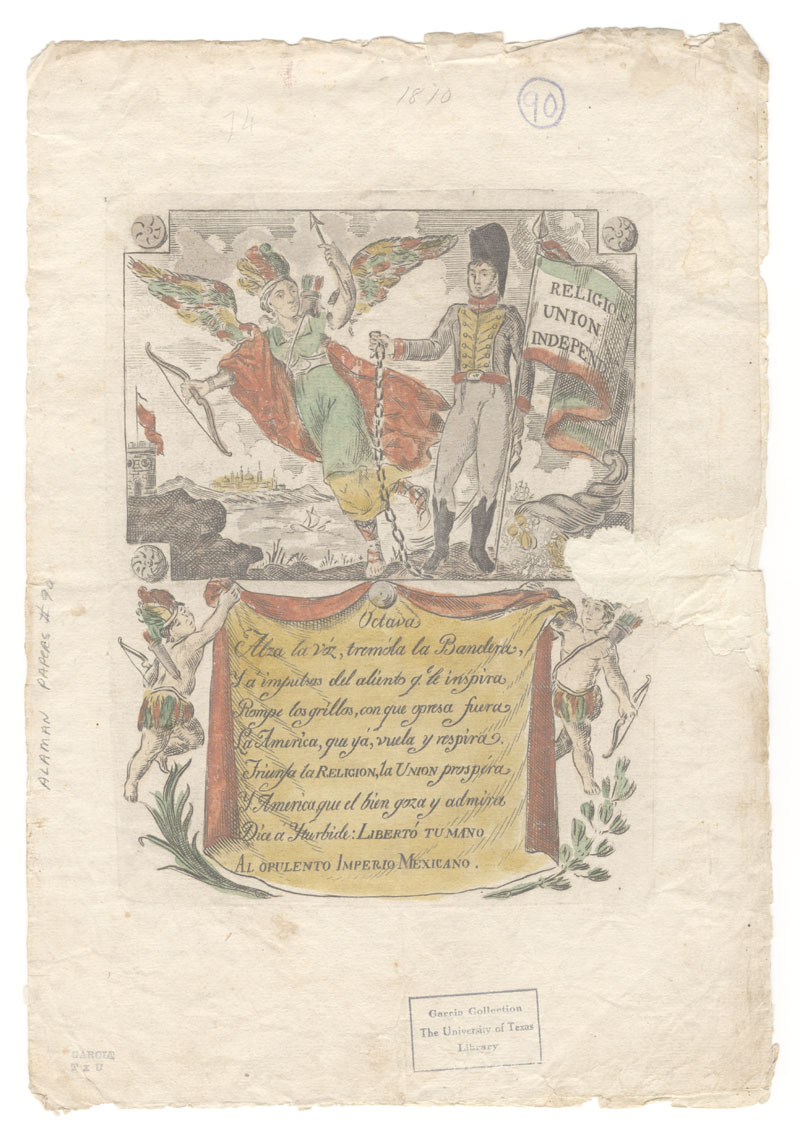 1810
90
74
RELIGION
UNION
INDEPEND
Octava
Alza la vóz, tremóla la Bandera,
Y a impulsos del aliento q.e le inspira
Rompe los grillos, con que opresa fuera
La America, que yá, vuela y respira.
Triunfa la RELIGION, la UNION prospéra
Y America que el bien goza y admira
Dice a Yturbide: LIBERTÓ TU MANO
AL OPULENTO IMPERIO MEXICANO.
ALAMAN PAPERS #90
Garcia Collection
The University of Texas
Library
GARCIA
T x U